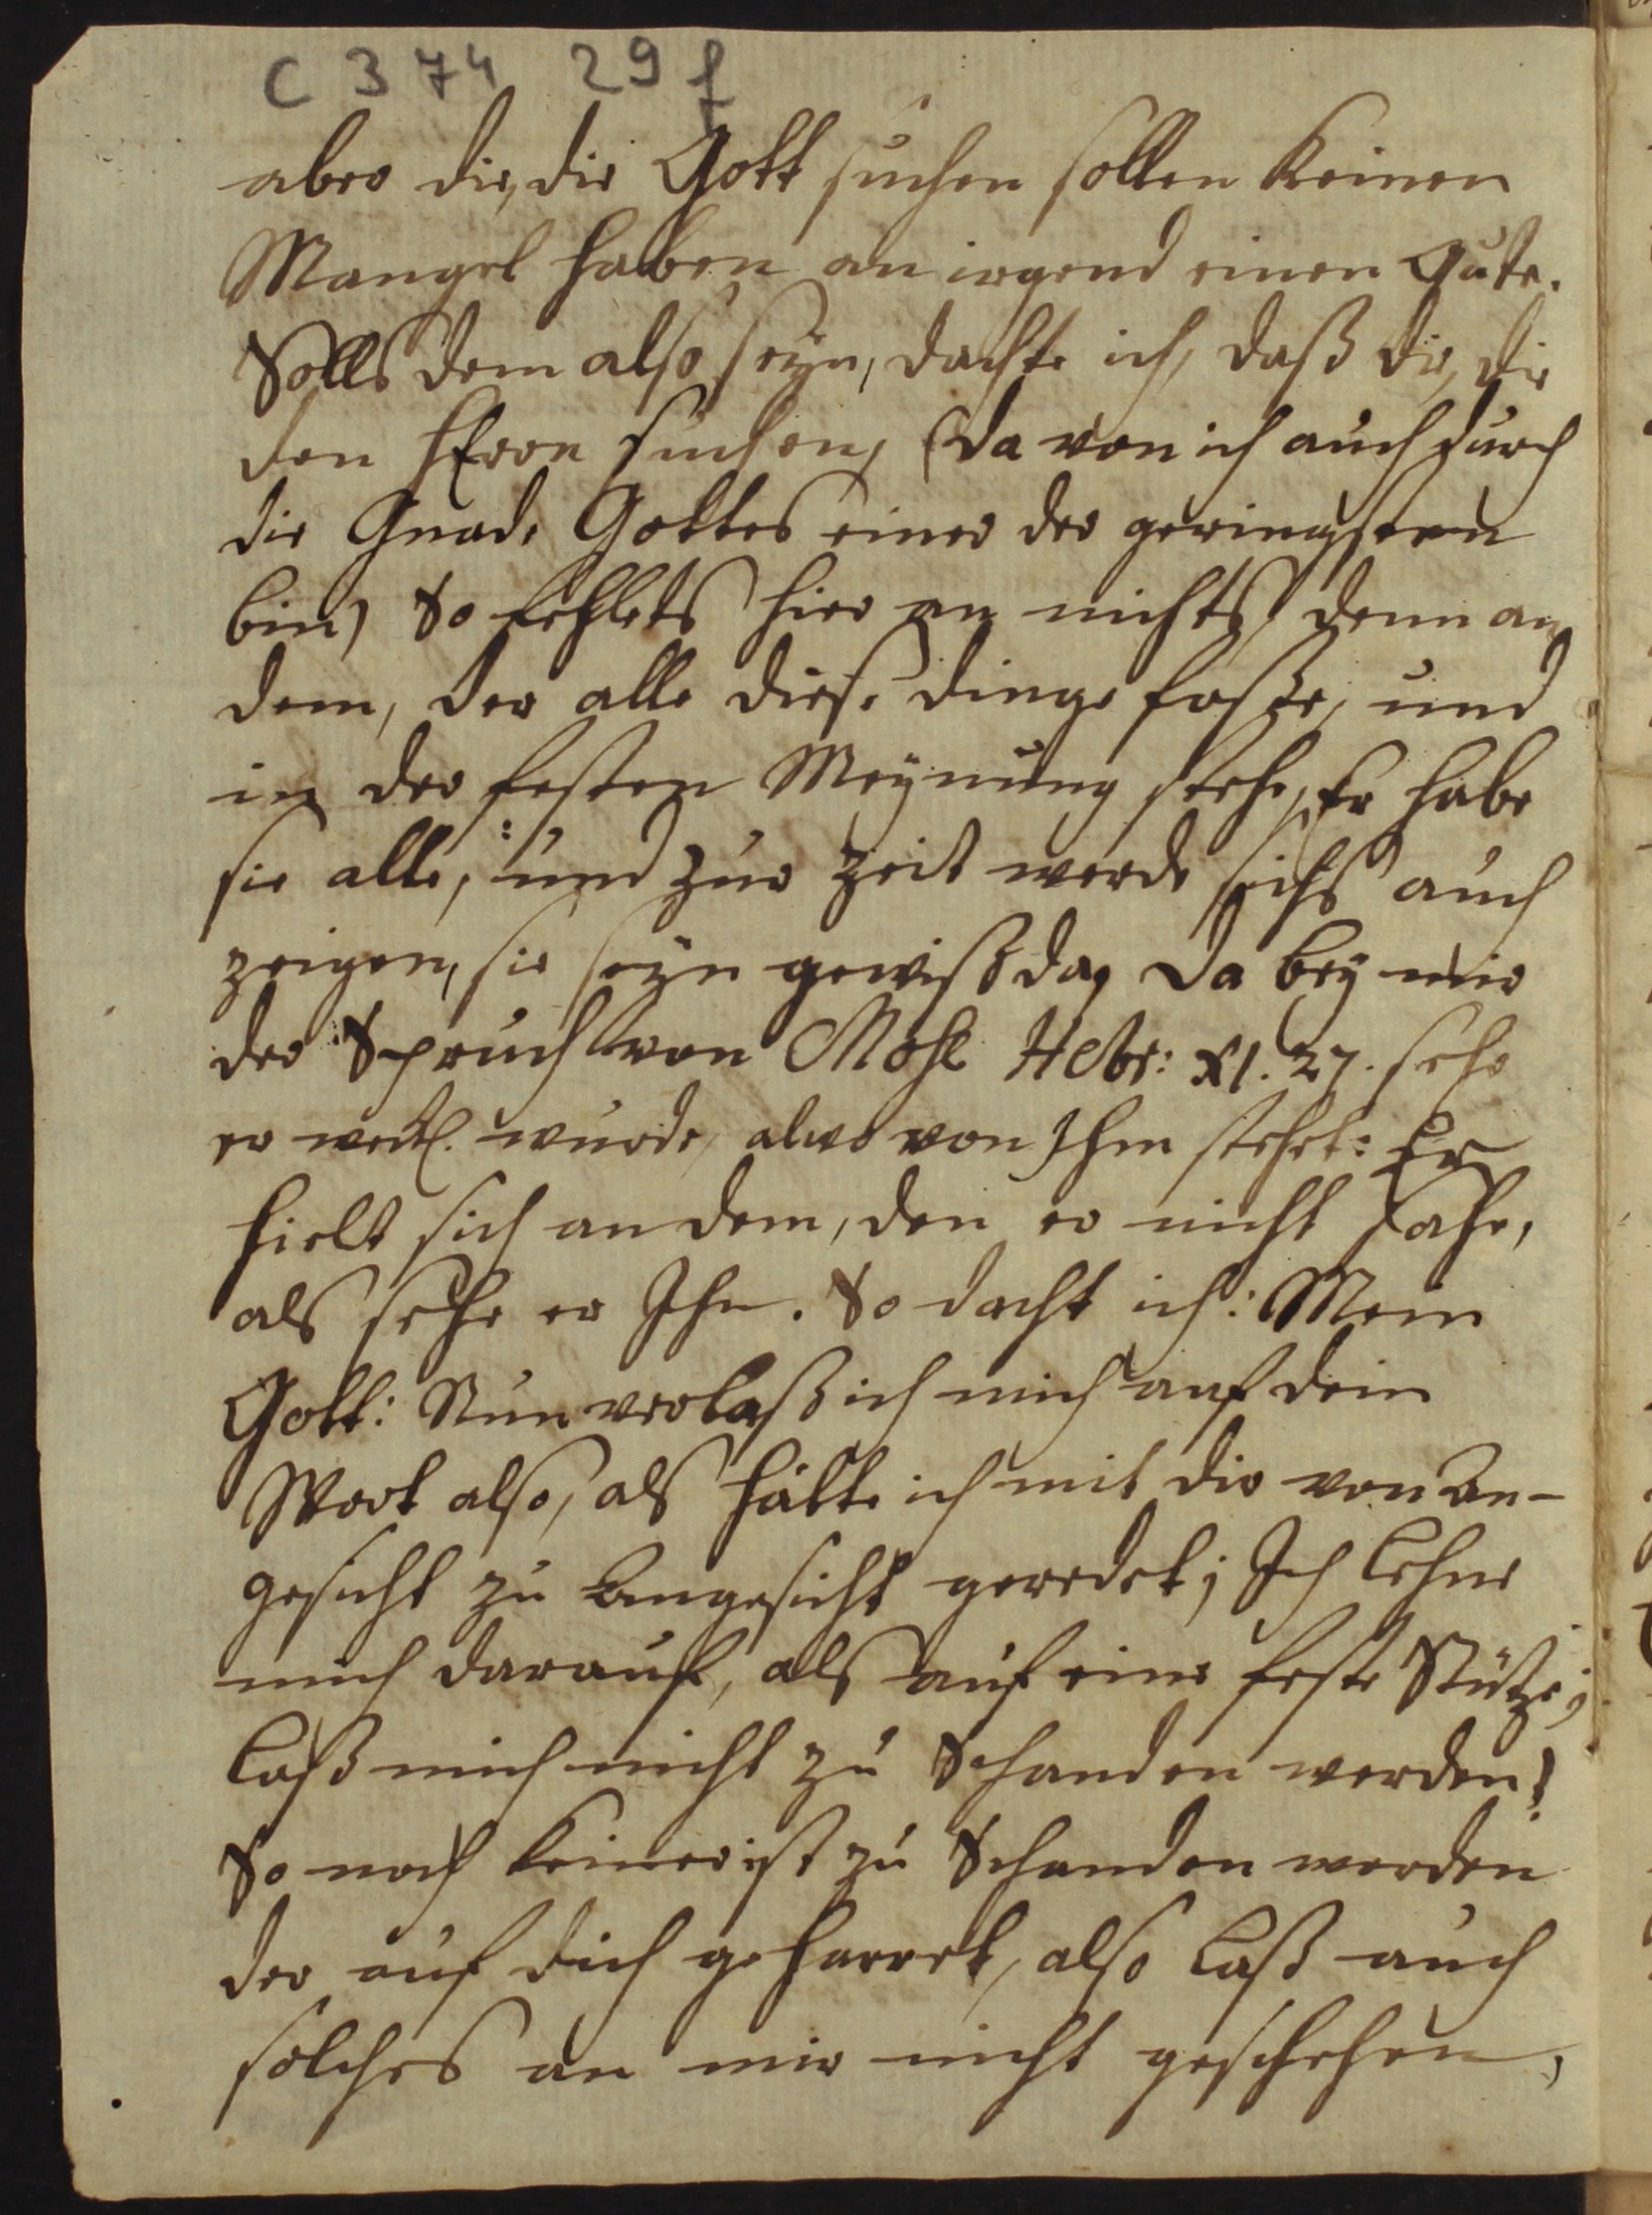 C 374 29 f
aber die, die Gott suchen sollen keinen
Mangel haben an irgend einen Gute.
Solls dem also seyn, dachte ich, daß die, die
den HErrn suchen, (da von ich auch durch
die Gnade Gottes einer der geringsten
bin) So fehlets hier an nichts, denn an
dem, der alle diese dinge faße, und
in der festen Meynung stehe, Er habe
sie alle, und zur Zeit werde sichs auch
zeigen, sie seyn gewiß da, da bey mir
der Spruch von Mose Hebr: XI. 27. sehr
erweckl. wurde, alwo von Ihm stehet: Er
hielt sich an dem, den er nicht sahe,
als sehe er Ihn. So dacht ich: Mein
Gott: Nun verlaß ich mich auf dein
Wort also, als hätte ich mit dir von An-
gesicht zu Angesicht geredet; Ich lehne
mich darauf, als auf eine feste Stütze;
Laß mich nicht zu Schanden werden!
So noch keiner ist zu Schanden worden
der auf dich geharret, also laß auch
solches an mir nicht geschehen,